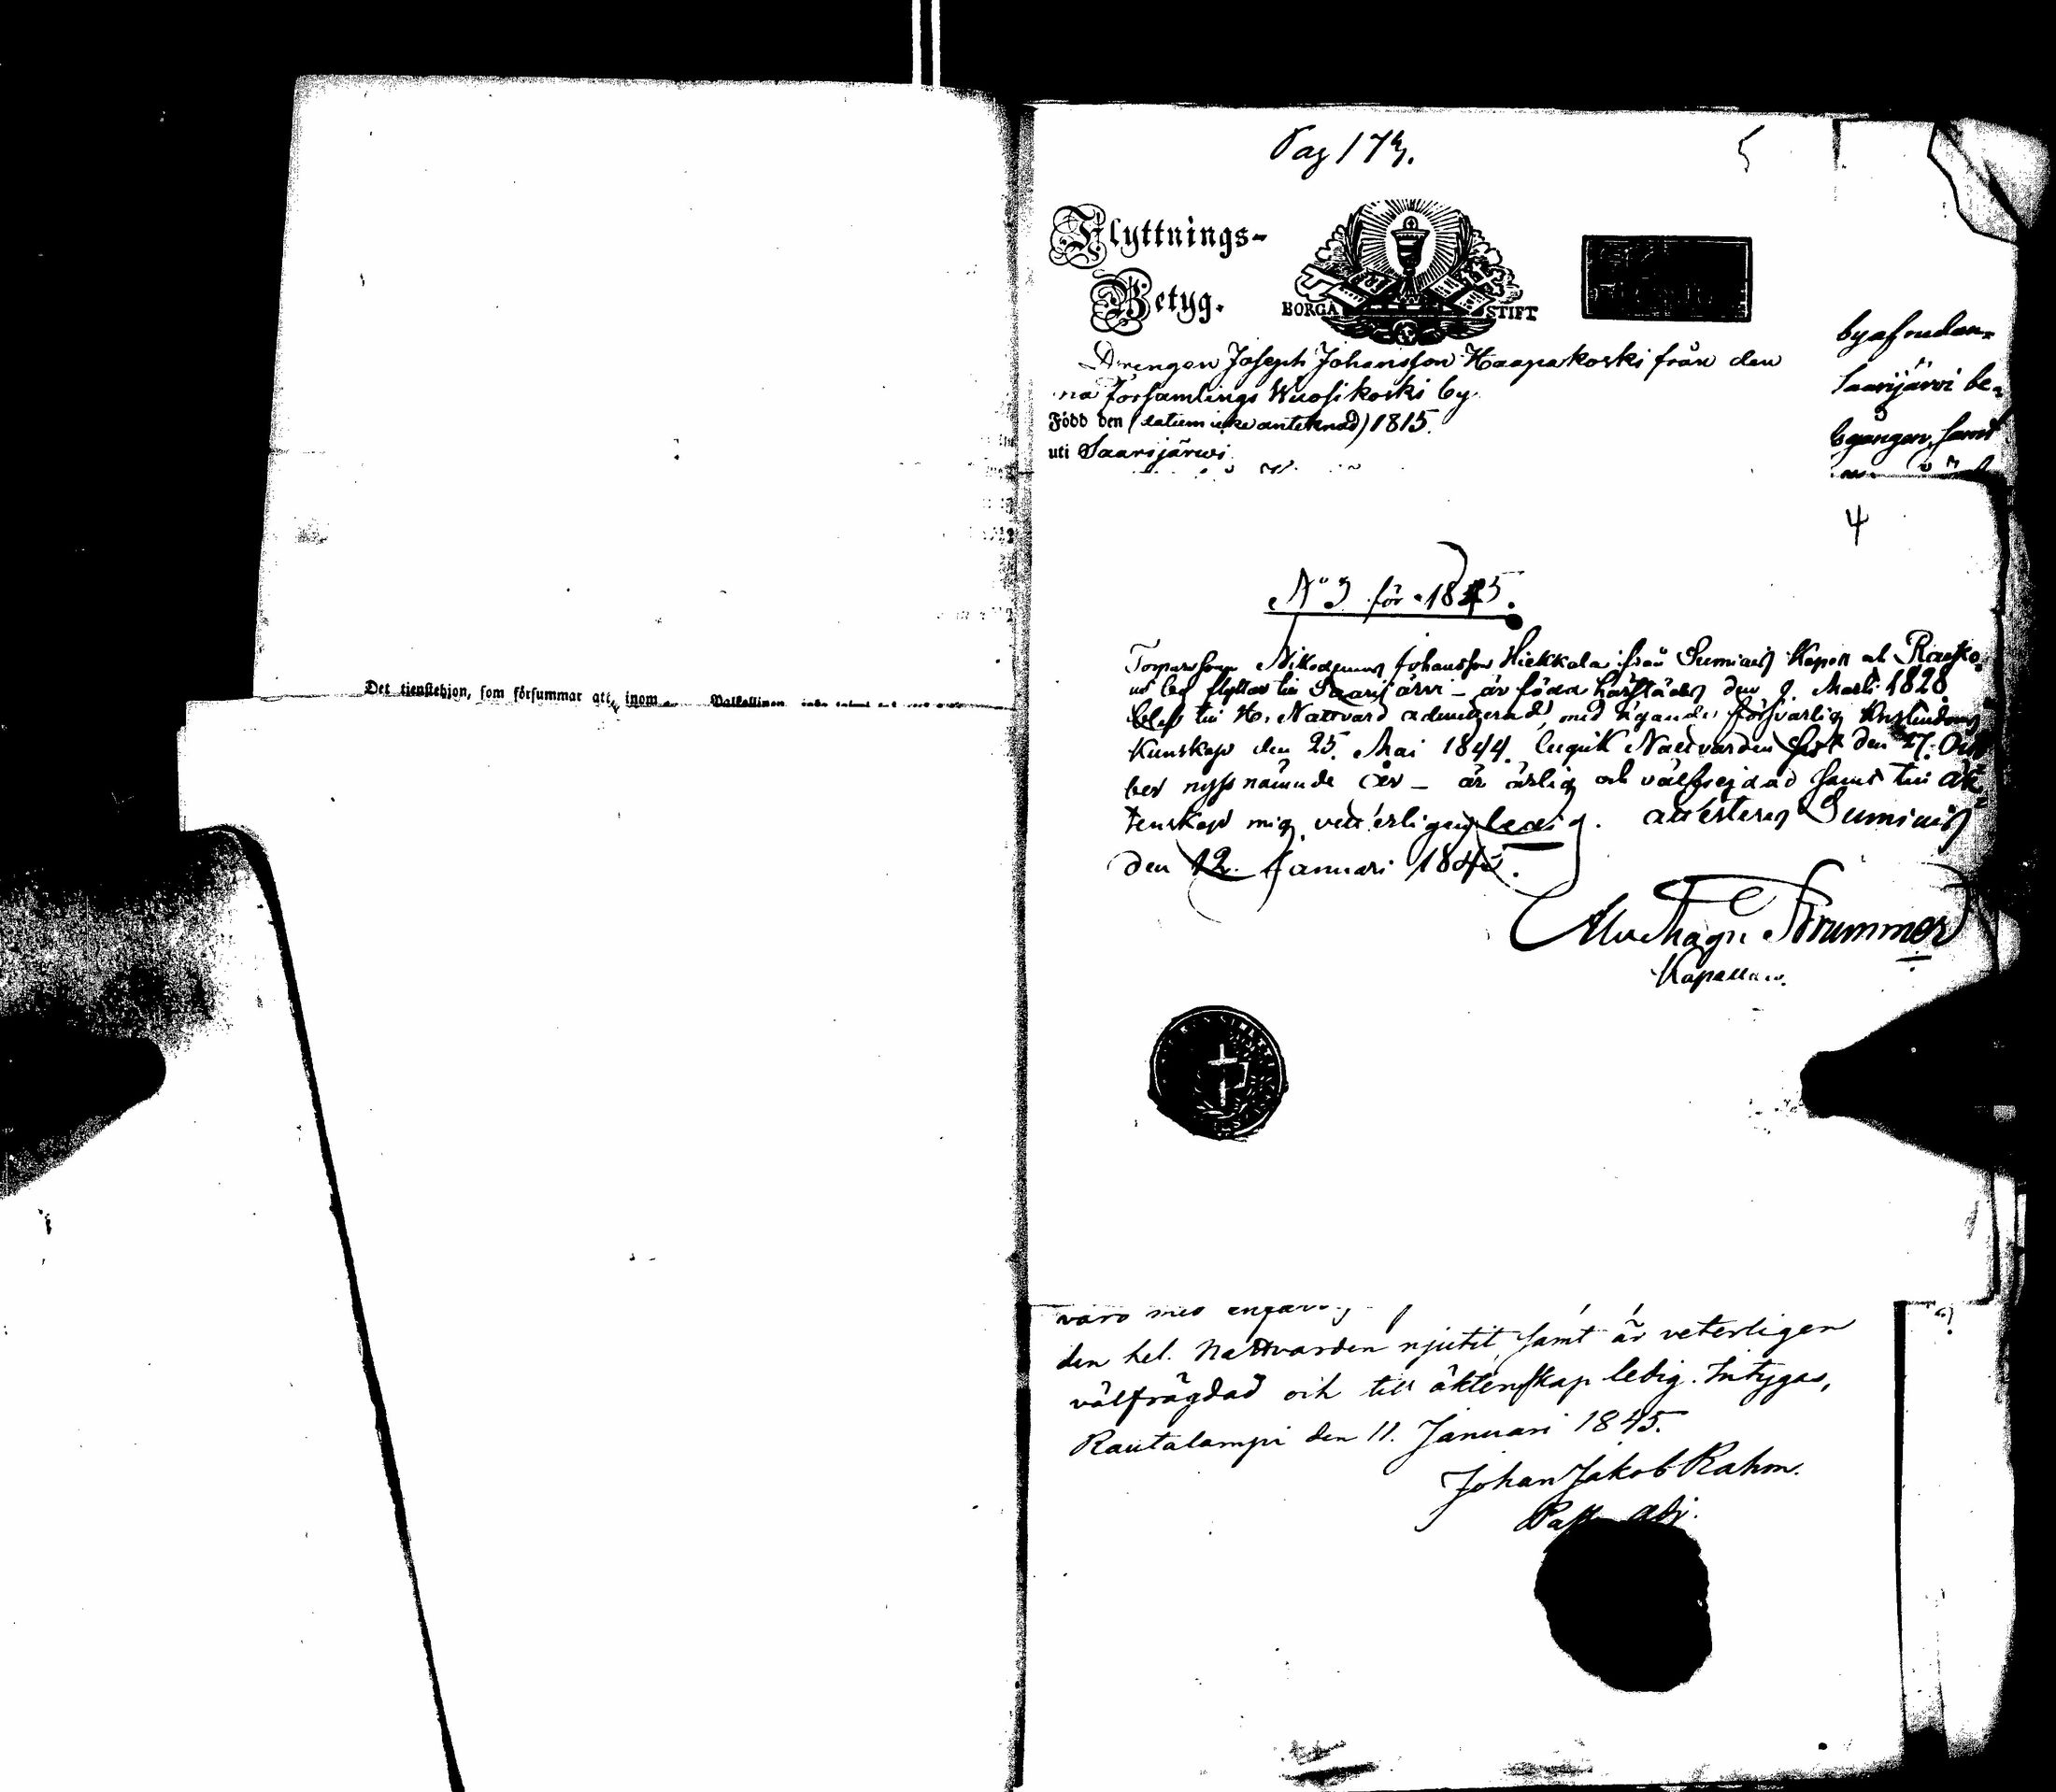 Det tjenstehjon, som försummar att inom
Pag 173.
Flyttnings-
Betyg.
BORGÅ STIFT
Drengen Joseph Johansson Haapakoski från den
na församlings Wuosikoski by
Född den (datum icke antecknad) 1815.
uti Saarijärwi
Saarijärvi be-
bgången, samt
4
N:o 3 för 1845.
Nikodemus Johansson Hiekkala från Sumiais Kapell och
flyttar till Saarijärvi – är född härstädes den 9. Martii 1828
blef till H. Nattvard admitterad, med ägande försvarlig Kristendoms
Kunskap den 25. Mai 1844, begick Nattvarden sist den 27. Octo
ber nyssnämnde år – är ärlig och välfrejdad samt till äk
tenskap mig vetterligen ledig. attesteras Sumiais
den 12. Januari 1845.
Brummer
Kapellan.
den hel. Nattvarden njutit, samt är veterligen
välfrägdad och till äktenskap ledig. Intygas,
Rautalampi den 11. Januari 1845.
Johan Jakob Rahm.
Past. adj.